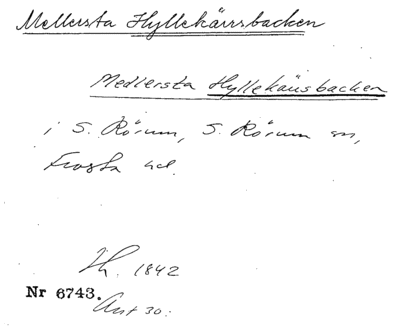 Mellersta Hyllekärrsbacken
Medlersta Hyllekäusbacken
i S. Rörum, S. Rörum sn,
Frosta hd.
1842
Nr 6743.
Ant 30.